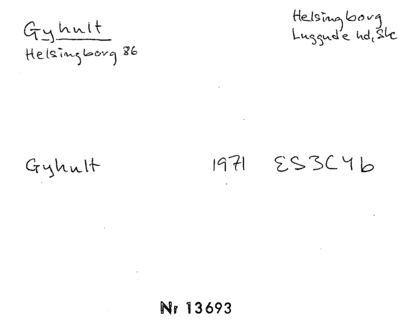 Gyhult
Helsingborg 86
Helsingborg
Luggude hd, Sk
Gyhult 1971 ES3C4b
Nr 13693